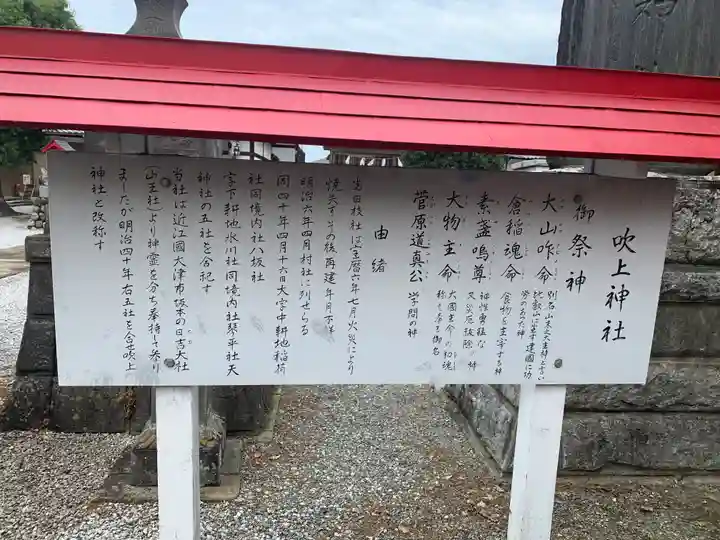 吹上神社
御祭神
大山咋命
別名山末之大主神と云い
比叡山に坐す建國に功
労のあった神
倉稲魂命
食物を主宰する神
素盞嗚尊
神性勇猛な
又災厄抜除の神
大物主命
大國主命の和魂
称え奉る御名
菅原道真公
学問の神
由緒
当田枝社は宝暦六年七月火災により
焼失すその後再建年月不詳
明治六年四月村社に列せらる
同四十年四月十六日大字中耕地稲荷
社同境内社八坂社
字下耕地氷川社同境内社琴平社天
神社の五社を合祀す
当社は近江國大津市坂本の日吉大社
(山王社)より神霊を分ち奉持して参り
ましたが明治四十年右五社を合せ吹上
神社と改称す